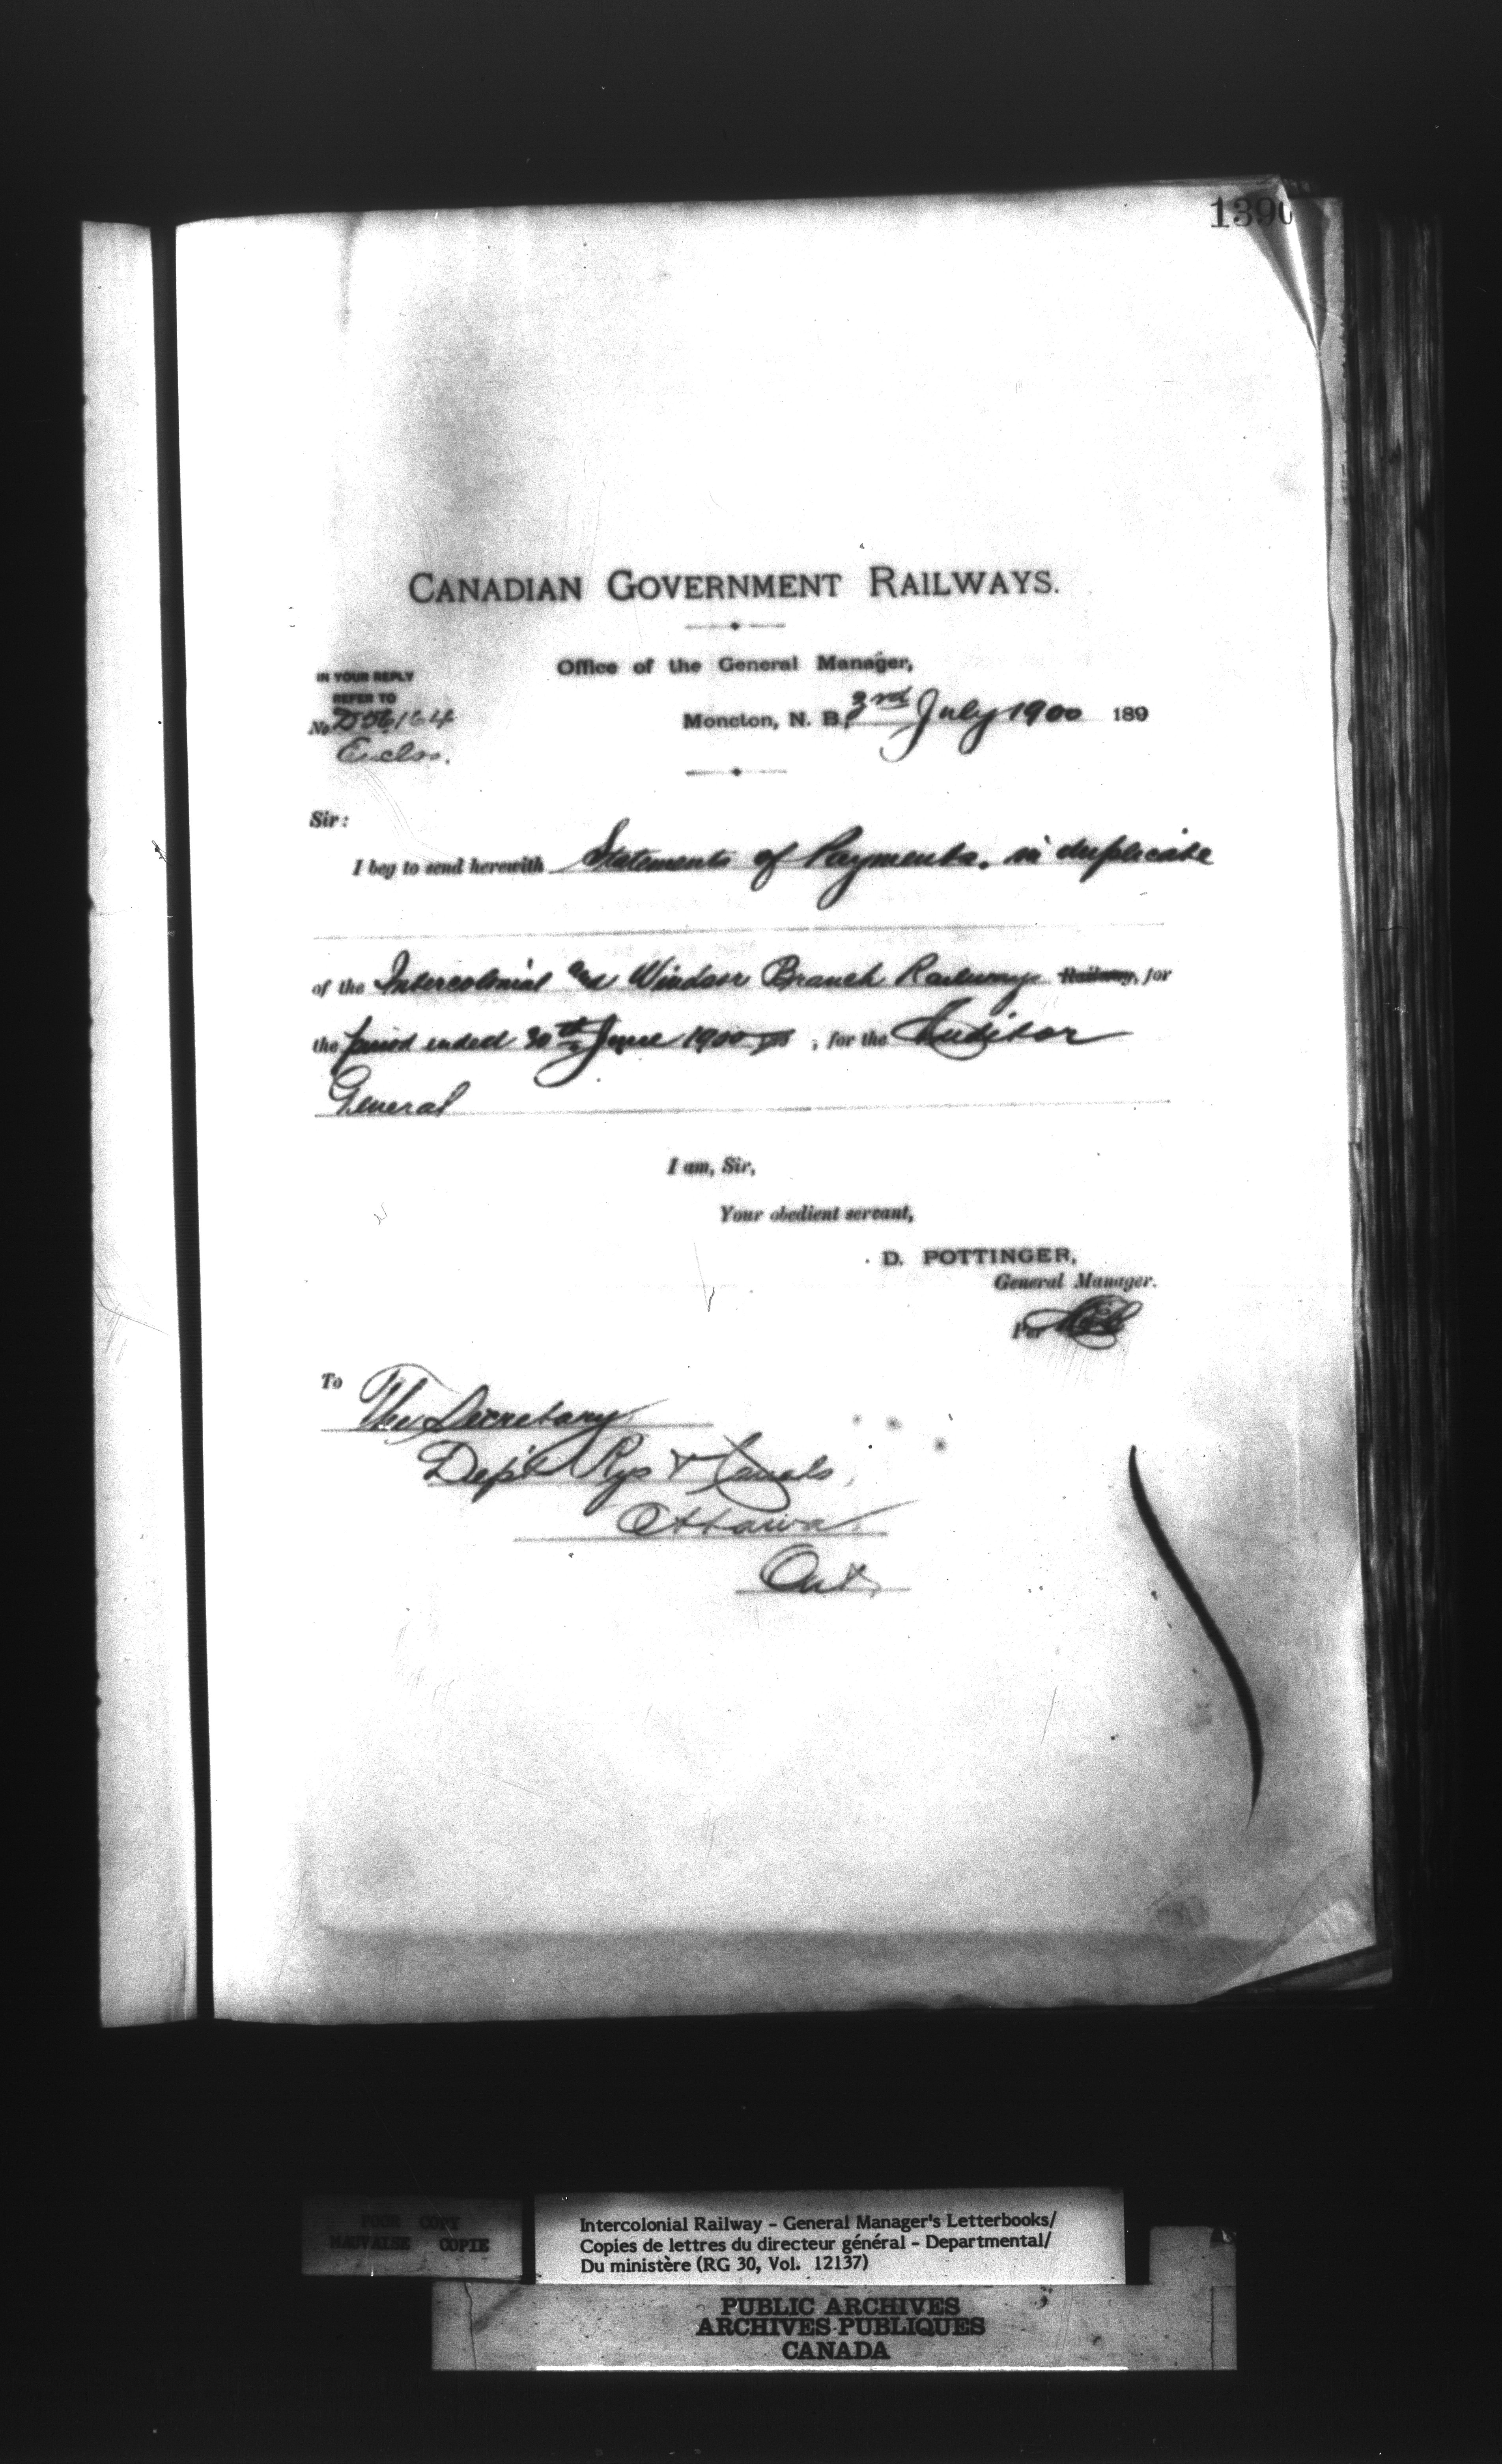 1390
CANADIAN GOVERNMENT RAILWAYS.
Office of the General Manager,
IN YOUR REPLY
REFER TO
No.
Enclos.
Moncton, N. B., 3rd July 1900 189
Sir:
I beg to send herewith Statements of Payments. in duplicate
of the Intercolonial and Windsor Branch Railways Railway, for
the period ended 30th June 1900 , for the Auditor
General
I am, Sir,
Your obedient servant,
D. POTTINGER,
General Manager.
Per
To The Secretary
Dep't Rys & Canals,
Ottawa
Ont.
POOR COPY
MAUVAISE COPIE
Intercolonial Railway - General Manager's Letterbooks/
Copies de lettres du directeur général - Departmental/
Du ministère (RG 30, Vol. 12137)
PUBLIC ARCHIVES
ARCHIVES PUBLIQUES
CANADA